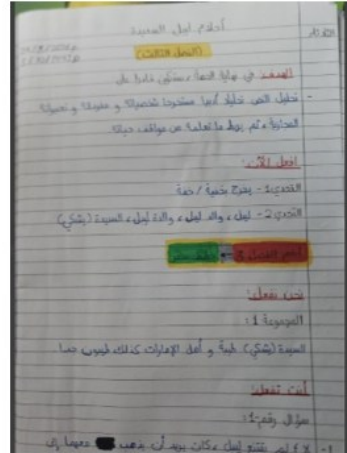 أحلام ليبل السعيدة
(الفصل الثالث)
الهدف: في نهاية الحصة سنكون قادرا على
- تحليل النص تحليلا أدبيا مستخرجا شخصياته و
ثم ربط ما تعلمه من مواقف حياته
افعل الآن:
التحدي 1 - يخرج بخفية / خفة
التحدي 2 - ليبل، والد ليبل، والدة ليبل، السيدة (يشكي)
نحن نفعل:
المجموعة 1:
السيدة (يشكي) طيبة و أهل الإمارات كذلك طيبون جدا
أنت تفعل:
سؤال رقم 1:
1- لا لم يقتنع ليبل، كان يريد أن يذهب معهما إلى